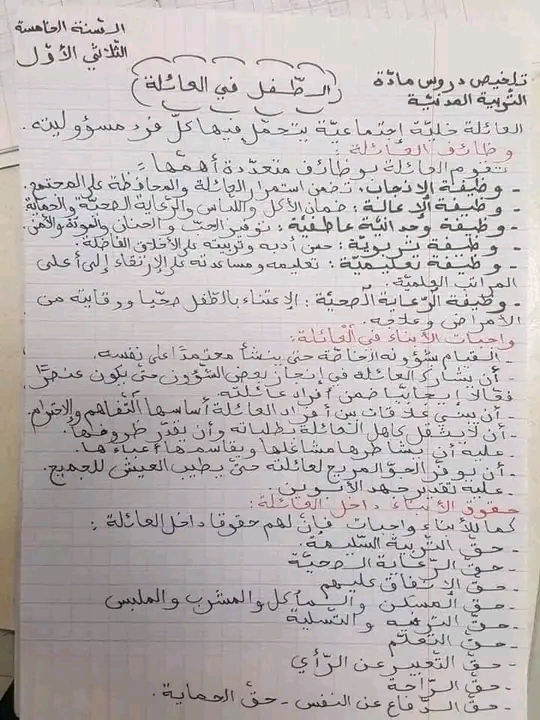 السّنة الخامسة
الثّلاثي الأوّل
تلخيص دروس مادّة
التّربية المدنيّة
(الطّفل في العائلة)
العائلة خليّة إجتماعيّة يتحمّل فيها كلّ فرد مسؤوليته.
وظائف العائلة :
تقوم العائلة بوظائف متعدّدة أهمّها :
- وظيفة الإنجاب: تضمن استمرار العائلة والمحافظة على المجتمع.
- وظيفة الإعالة: ضمان الأكل واللّباس والرّعاية الصّحيّة والحماية
- وظيفة وجدانيّة عاطفيّة: توفير الحبّ و الحنان والمودّة والأمن.
- وظيفة تربويّة: حسن أدبه وتربيته على الأخلاق الفاضلة.
- وظيفة تعليميّة: تعليمه ومساعدته على الإرتقاء إلى أعلى
المراتب العلميّة.
- وظيفة الرّعاية الصّحيّة: الإعتناء بالطّفل صحّيا ووقايته من
الأمراض وعلاجه.
واجبات الأبناء في العائلة:
- القيام بشؤونه الخاصّة حتّى ينشأ معتمدا على نفسه.
- أن يشارك العائلة في إنجاز بعض الشّؤون حتّى يكون عنصرًا
فعّالا إيجابيّا ضمن أفراد عائلته.
- أن يبني علاقات بين أفراد العائلة أساسها التّفاهم والإحترام.
- أن لا يثقل كاهل العائلة بطلباته وأن يقدّر ظروفها.
- عليه أن يشاطرها مشاغلها ويقاسمها أعباءها.
- أن يوفّر الجوّ المريح لعائلته حتّى يطيب العيش للجميع.
- عليه تقدير جهد الأبوين.
حقوق الأبناء داخل العائلة:
كما للأبناء واجبات فإنّ لهم حقوقا داخل العائلة :
- حقّ التّربية السّليمة
- حقّ الرّعاية الصّحيّة
- حقّ الإنفاق عليهم
- حقّ المسكن والمأكل والمشرب والملبس
- حقّ التّرفيه والتّسلية
- حقّ التّعلّم
- حقّ التّعبير عن الرّأي
- حقّ الرّاحة
- حقّ الدّفاع عن النفس - حقّ الحماية .